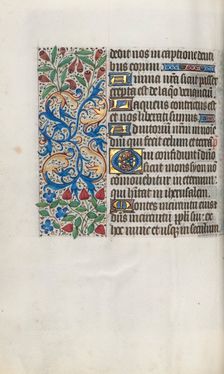 dedit nos in captione denti
bus eorum
Anima nr̃a sicut passer
erepta est de laq̃o venantiũ
Laqueus contritus est
et nos liberati sumus
Adiutoriũ nr̃m in nomi
dñi qui fecit celum et terrã
Qui confidunt ĩ dño
sicut mons syon nõ
comouebitur in eternum
qui hĩtat in iherusalem
Montes in circuitu eius
dñs in circuitu ppl̃i sui ex
hoc nunc et usq̃ in seculum